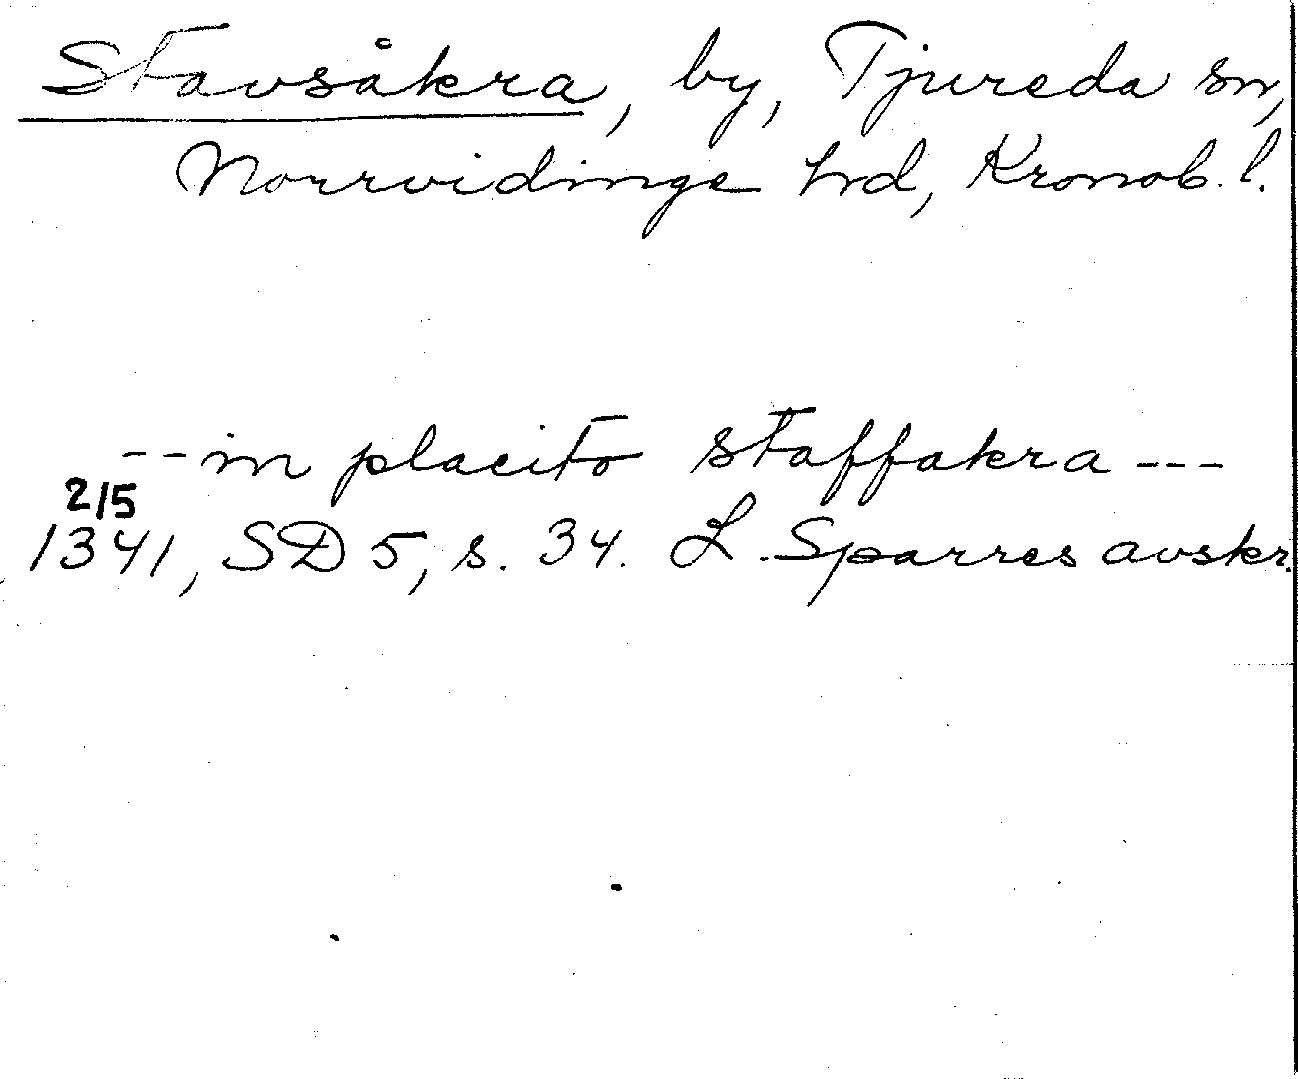 Stavsåkra, by, Tjureda sn,
Norrvidinge hd, Kronob. l.
-- in placito staffakra ---
2/5
1341, SD 5, s. 34. L. Sparres avskr.